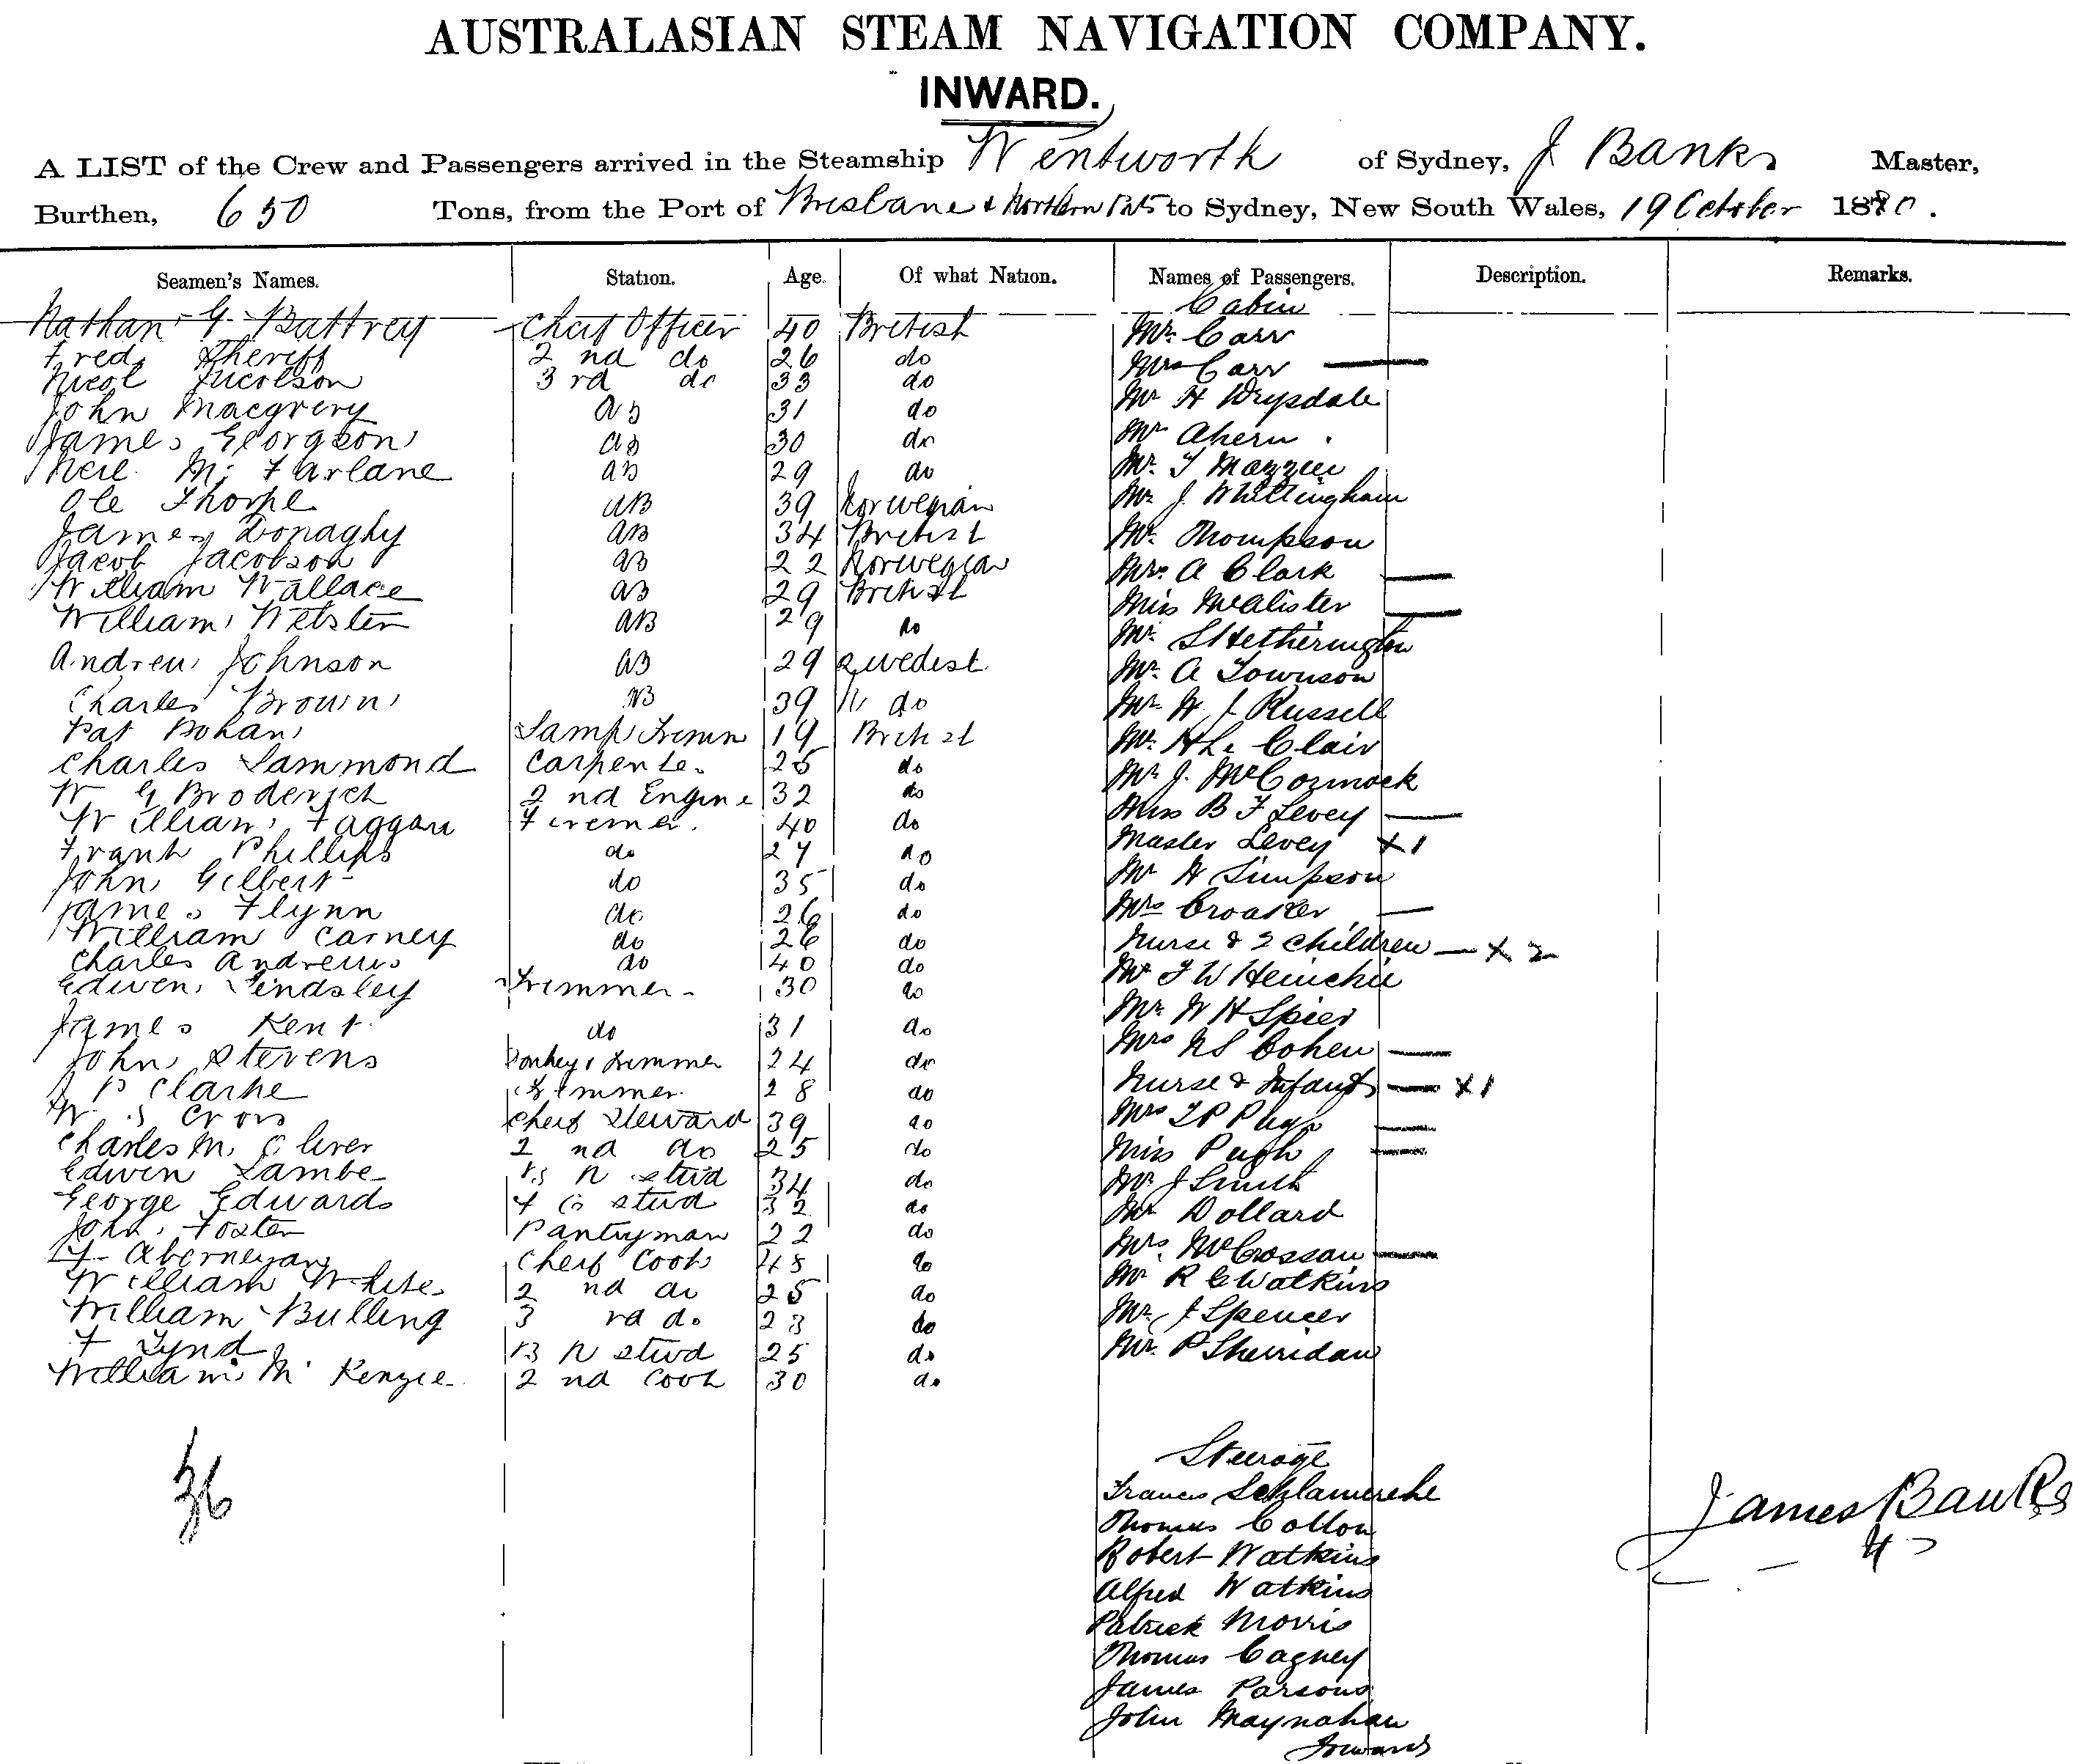 AUSTRALASIAN STEAM NAVIGATION COMPANY.
INWARD.
A LIST of the Crew and Passengers arrived in the Steamship Wentworth of Sydney, J Banks Master,
Burthen, 650 Tons, from the Port of Brisbane & Northern to Sydney, New South Wales, 19 October 1880.
Seamen's Names. Station. Age. Of what Nation. Names of Passengers. Description. Remarks.
Cabin
Nathan G. Battrey Cheif Officer 40 British Mr. Carr
Fred. Sheriff 2 nd do 26 do Mrs Carr —
Nicol 3 rd do 33 do Mr H Drysdale
John Macgrery AB 31 do Mr Ahern
James Georgson AB 30 do Mr.
Neil Mc Farlane AB 29 do Mr J. Whittingham
Ole Thorpe AB 39 Norwegian Mr. Thompson
James Donaghy AB 34 British Mrs. A Clark —
Jacob Jacobson AB 22 Norwegian Miss McAlister —
William Wallace AB 29 British Mr. Hetherington
William Webster AB 29 do Mr. A Townson
Andrew Johnson AB 29 Swedish Mr. W J Russell
Charles Brown AB 39 do Mr. H Le Clair
Pat Bohan Lamp Trimm 19 British Mr J. McCormack
Charles Lammond Carpenter 25 do Miss B F Levey —
W G Broderick 2 nd Engine 32 do Master Levey X 1
William Faggan Firemen 40 do Mr W Simpson
Frank Phillips do 27 do Mrs Croaker —
John Gilbert do 35 do Nurse & 2 children — X 2
James Flynn do 26 do Mr F W
William Carney do 26 do Mr. W H Spier
Charles Andrews do 40 do Mrs Cohen —
Edwin Lindsley Trimmer 30 do Nurse & Infant — X1
James Kent do 31 do Mrs Pugh —
John Stevens Donkey Trimmer 24 do Miss Pugh —
J P Clarke Trimmer 28 do Mr. J Smith
W. S Crois Cheif Steward 39 do Mr Dollard
Charles M. Oliver 2 nd do 25 do Mrs. McCrossan —
Edwin Lambe stwd 34 do Mr R C Watkins
George Edwards F C stwd 32 do Mr. J Spencer
John Foster Pantryman 22 do Mr. P Sherridan
Cheif Cook 48 do
William White 2 nd do 25 do
William Bulling 3 rd do 23 do
F Lynd stwd 25 do
William Mc Kenzie 2 nd Cook 30 do
36
Steerage
Francis
Thomas Cotton
Robert Watkins
Alfred Watkins
Patrick Morris
Thomas Cagney
James Parsons
John Maynahan
Forwards
James Banks